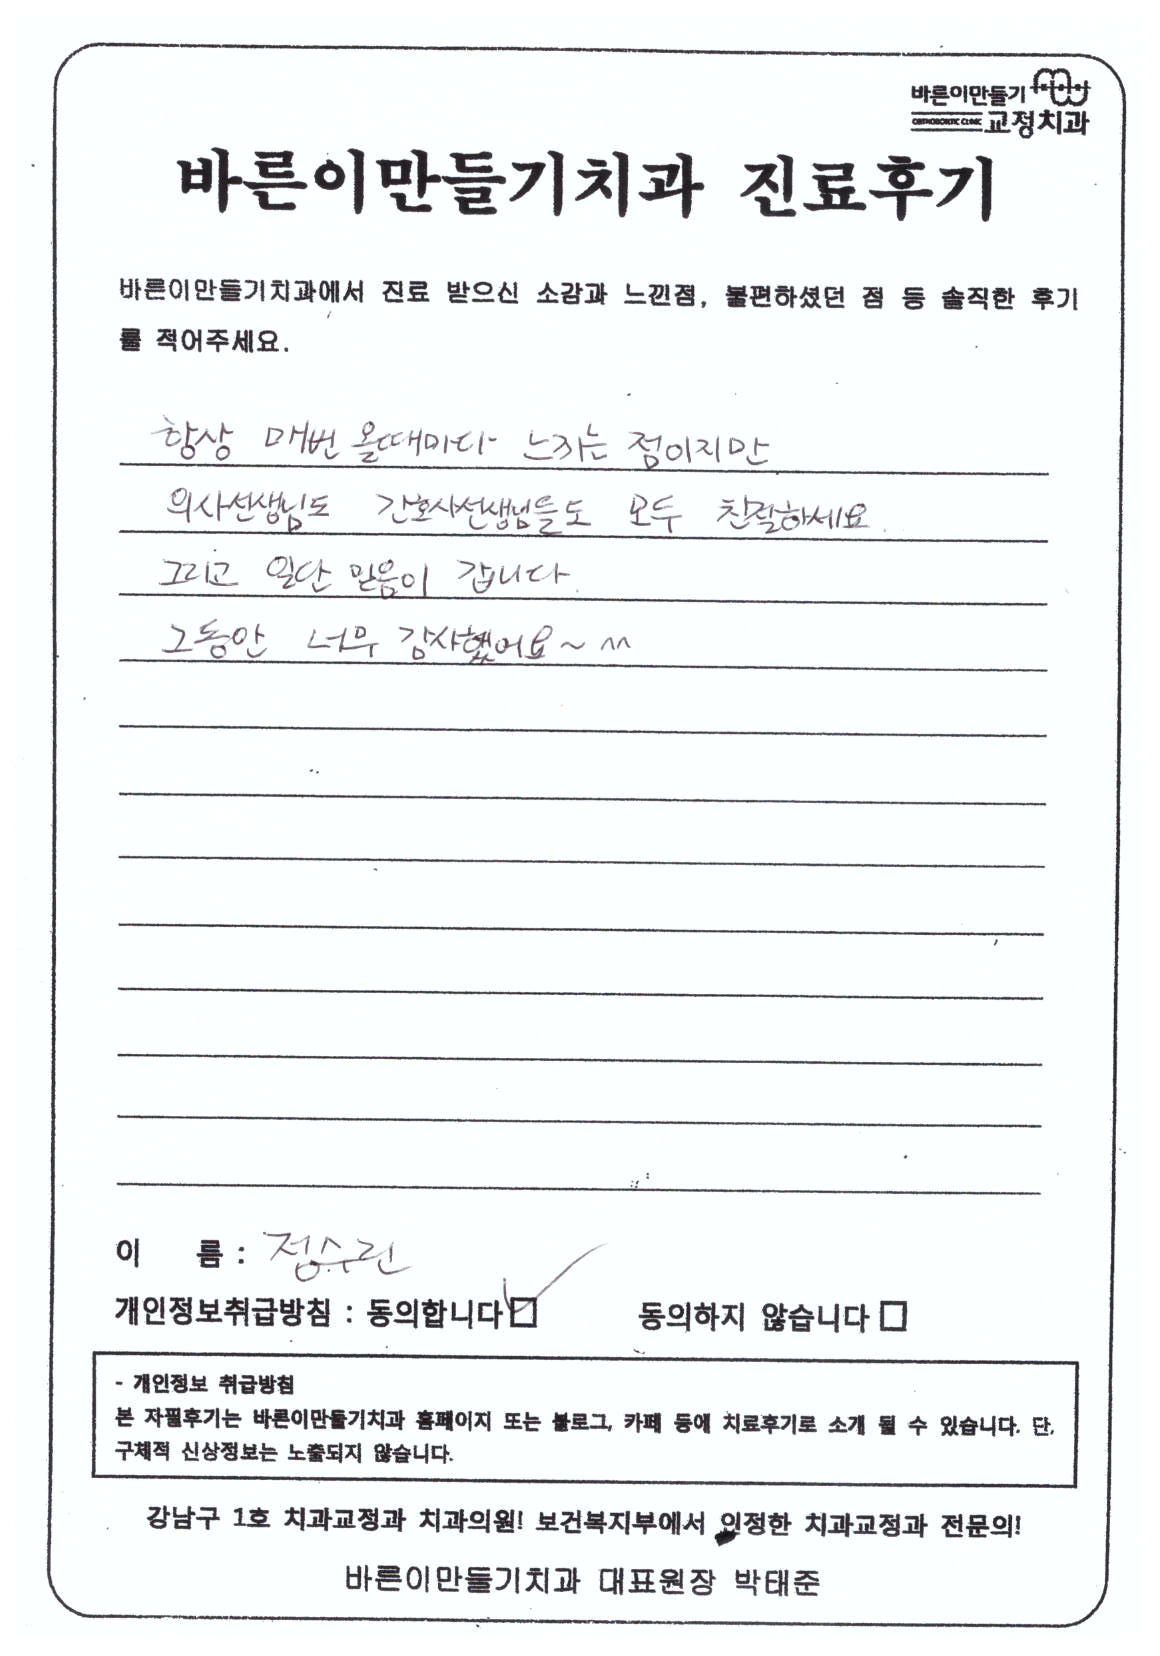 바른이만들기
ORTHODONTIC CLINIC 교정치과
바른이만들기치과 진료후기
바른이만들기치과에서 진료 받으신 소감과 느낀점, 불편하셨던 점 등 솔직한 후기
를 적어주세요.
항상 매번 올때마다 느끼는 점이지만
의사선생님도 간호사선생님들도 모두 친절하세요.
그리고 일단 믿음이 갑니다.
그동안 너무 감사했어요~ ^^
이 름 : 정수린
개인정보취급방침 : 동의합니다 동의하지 않습니다
- 개인정보 취급방침
본 자필후기는 바른이만들기치과 홈페이지 또는 블로그, 카페 등에 치료후기로 소개 될 수 있습니다. 단,
구체적 신상정보는 노출되지 않습니다.
강남구 1호 치과교정과 치과의원! 보건복지부에서 인정한 치과교정과 전문의!
바른이만들기치과 대표원장 박태준